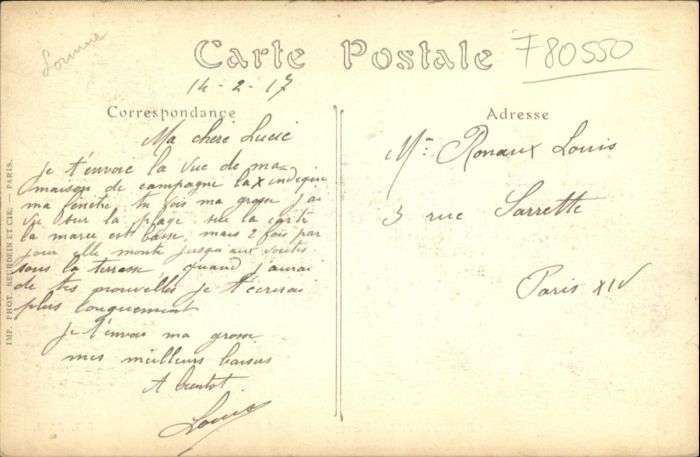 Lorraine
Carte Postale
F80550
14-2-17
Correspondance
Adresse
Ma chère Lucie
Je t'envoie la vue de ma
maison de campagne la x indique
ma fenêtre tu fois ma grosse j'ai
vie sur la plage sur la carte
la marée est basse, mais 2 fois par
jour elle monte jusqu'aux
sous la terrasse, quand j'aurai
de tes nouvelles je t'écrirai
plus longuement
Je t'envoie ma grosse
mes meilleurs baisers
A bientôt
Louis
Mr Ronaux Louis
3 rue Sarrette
Paris XIV
IMP. PHOT. NEURDEIN ET CIE. — PARIS.